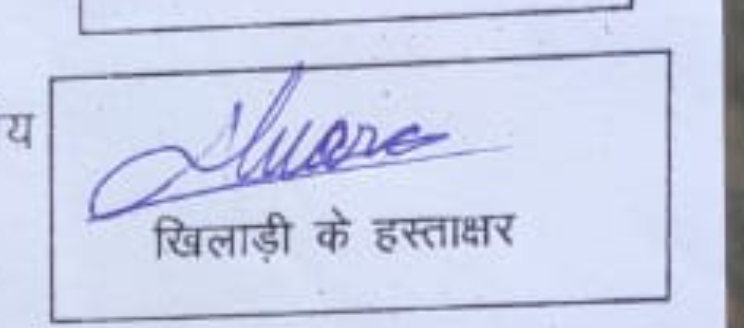 य
खिलाड़ी के हस्ताक्षर